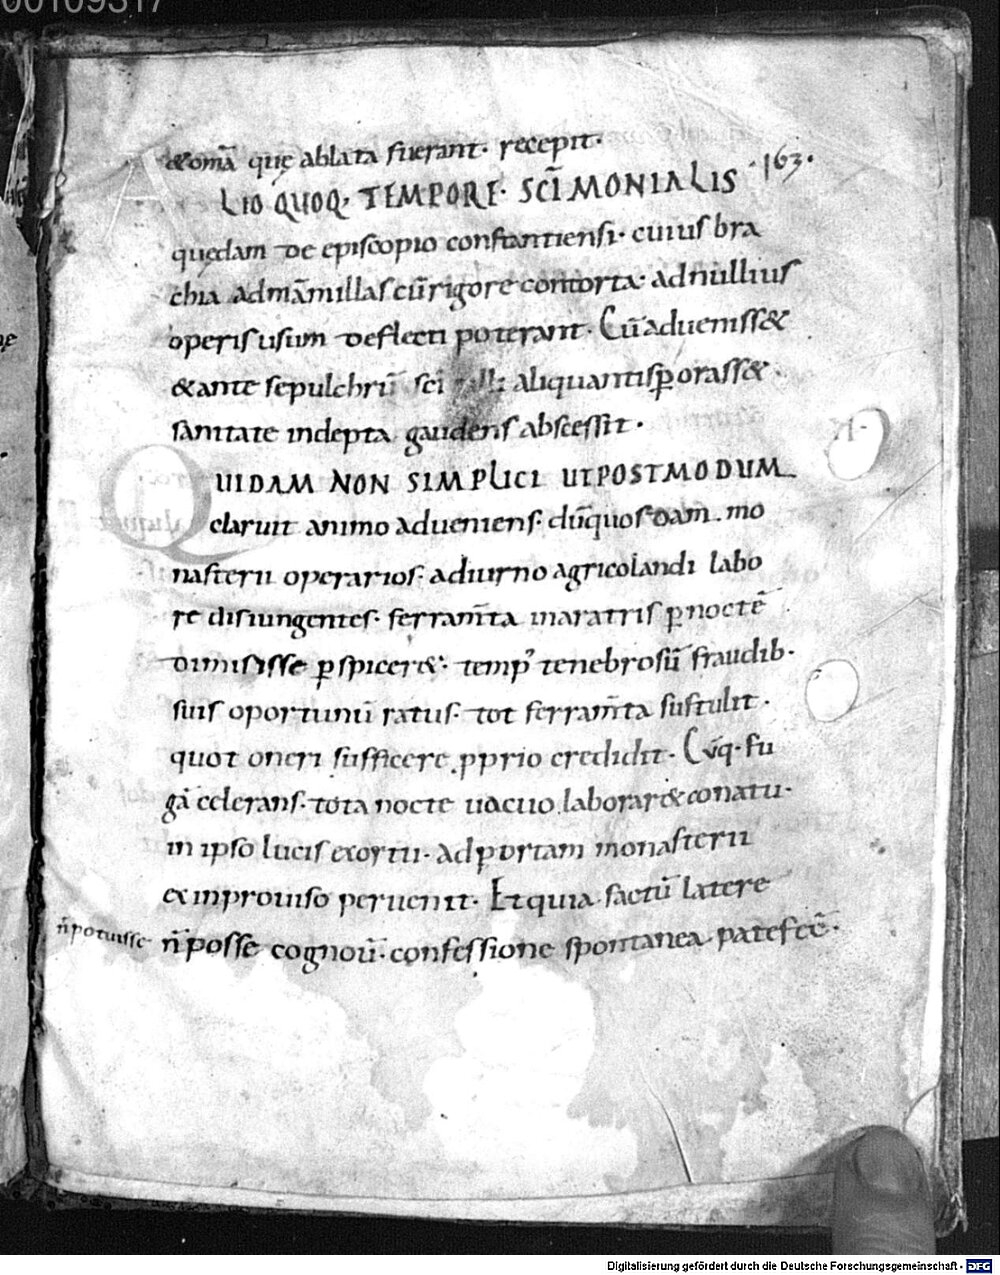 00109317
&omā quę ablata fuerant· recepit·
ALIO QUOQ· TEMPORE· SCĪMONIALIS ·163·
quędam de episcopio constantiensi· cuius bra
chia admāmillas cū rigore contorta· adnullius
operis usum deflecti poterant· Cū adueniss&
&ante sepulchrū scī aliquantisp orass&·
sanitate indepta gaudens abscessit·
QUIDAM NON SIMPLICI UTPOSTMODUM
claruit animo adueniens· cūquosdam mo
nasterii operarios· adiurno agricolandi labo
re disiungentes· ferram̄ta inaratris p noctē
dimisisse pspicer&· temp' tenebrosū fraudib·
suis oportunū ratus· tot ferram̄ta sustulit·
quot oneri sufficere pprio credidit· Cūq· fu
gā celerans· tota nocte uacuo laborar& conatu·
in ipso lucis exortu· adportam monasterii
eximprouiso peruenit· Et quia factū latere
n̄potuisse n̄posse cognouit̄· confessione spontanea patefec̄·
Digitalisierung gefördert durch die Deutsche Forschungsgemeinschaft · DFG